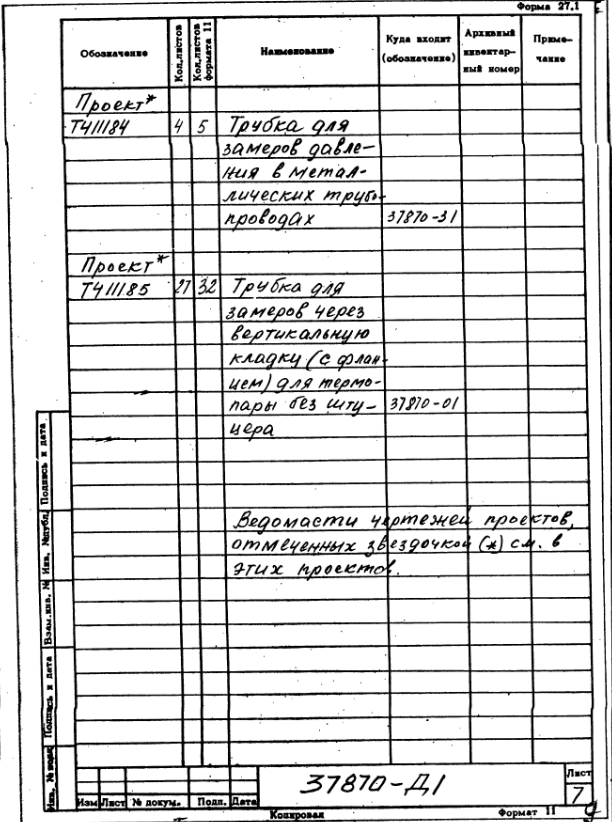 Форма 27.1
Обозначение Кол.листов Кол.листов формата 11 Наименование Куда входит (обозначение) Архивный инвентарный номер Примечание
Проект*
Т411184 4 5 Трубка для
замеров давле-
ния в метал-
лических трубо-
проводах 37870-31
Проект*
Т411185 27 32 Трубка для
замеров через
вертикальную
кладку (с флан-
цем) для термо-
пары без шту- 37870-01
цера
Ведомасти чертежей проектов,
отмеченных звездочкой (*) см. в
этих проектов.
Подпись и дата
Инв. №дубл.
Взам.инв. №
Подпись и дата
Инв. № подл
37870-Д1
Лист
7
Изм Лист № докум. Подп. Дата
Копировал Формат 11
9